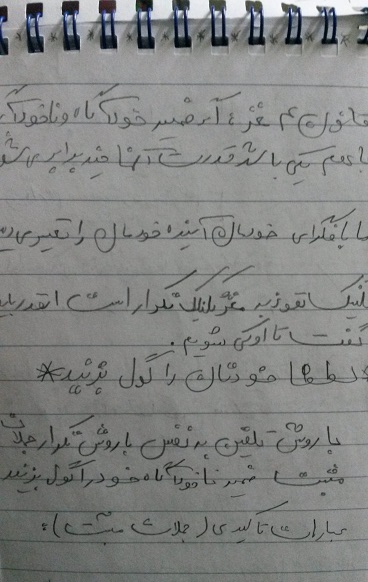 قانون ۴ مغز، اگر ضمیر خودآگاه و ناخودآگاه
با هم یکی باشد قدرت آنها چند برابر می شود
ما با فکرای خودمان آینده خودمان را تغییر می دهیم
تکنیک نفوذ به مغز تکنیک تکرار است انقدر باید
گفت تا اوکی شویم.
* لطفا خودتان را گول بزنید *
با روش تلقین به نفس با روش تکرار جملات
مثبت ضمیر ناخودآگاه خود را گول بزنید
عبارات تاکیدی (جملات مثبت):